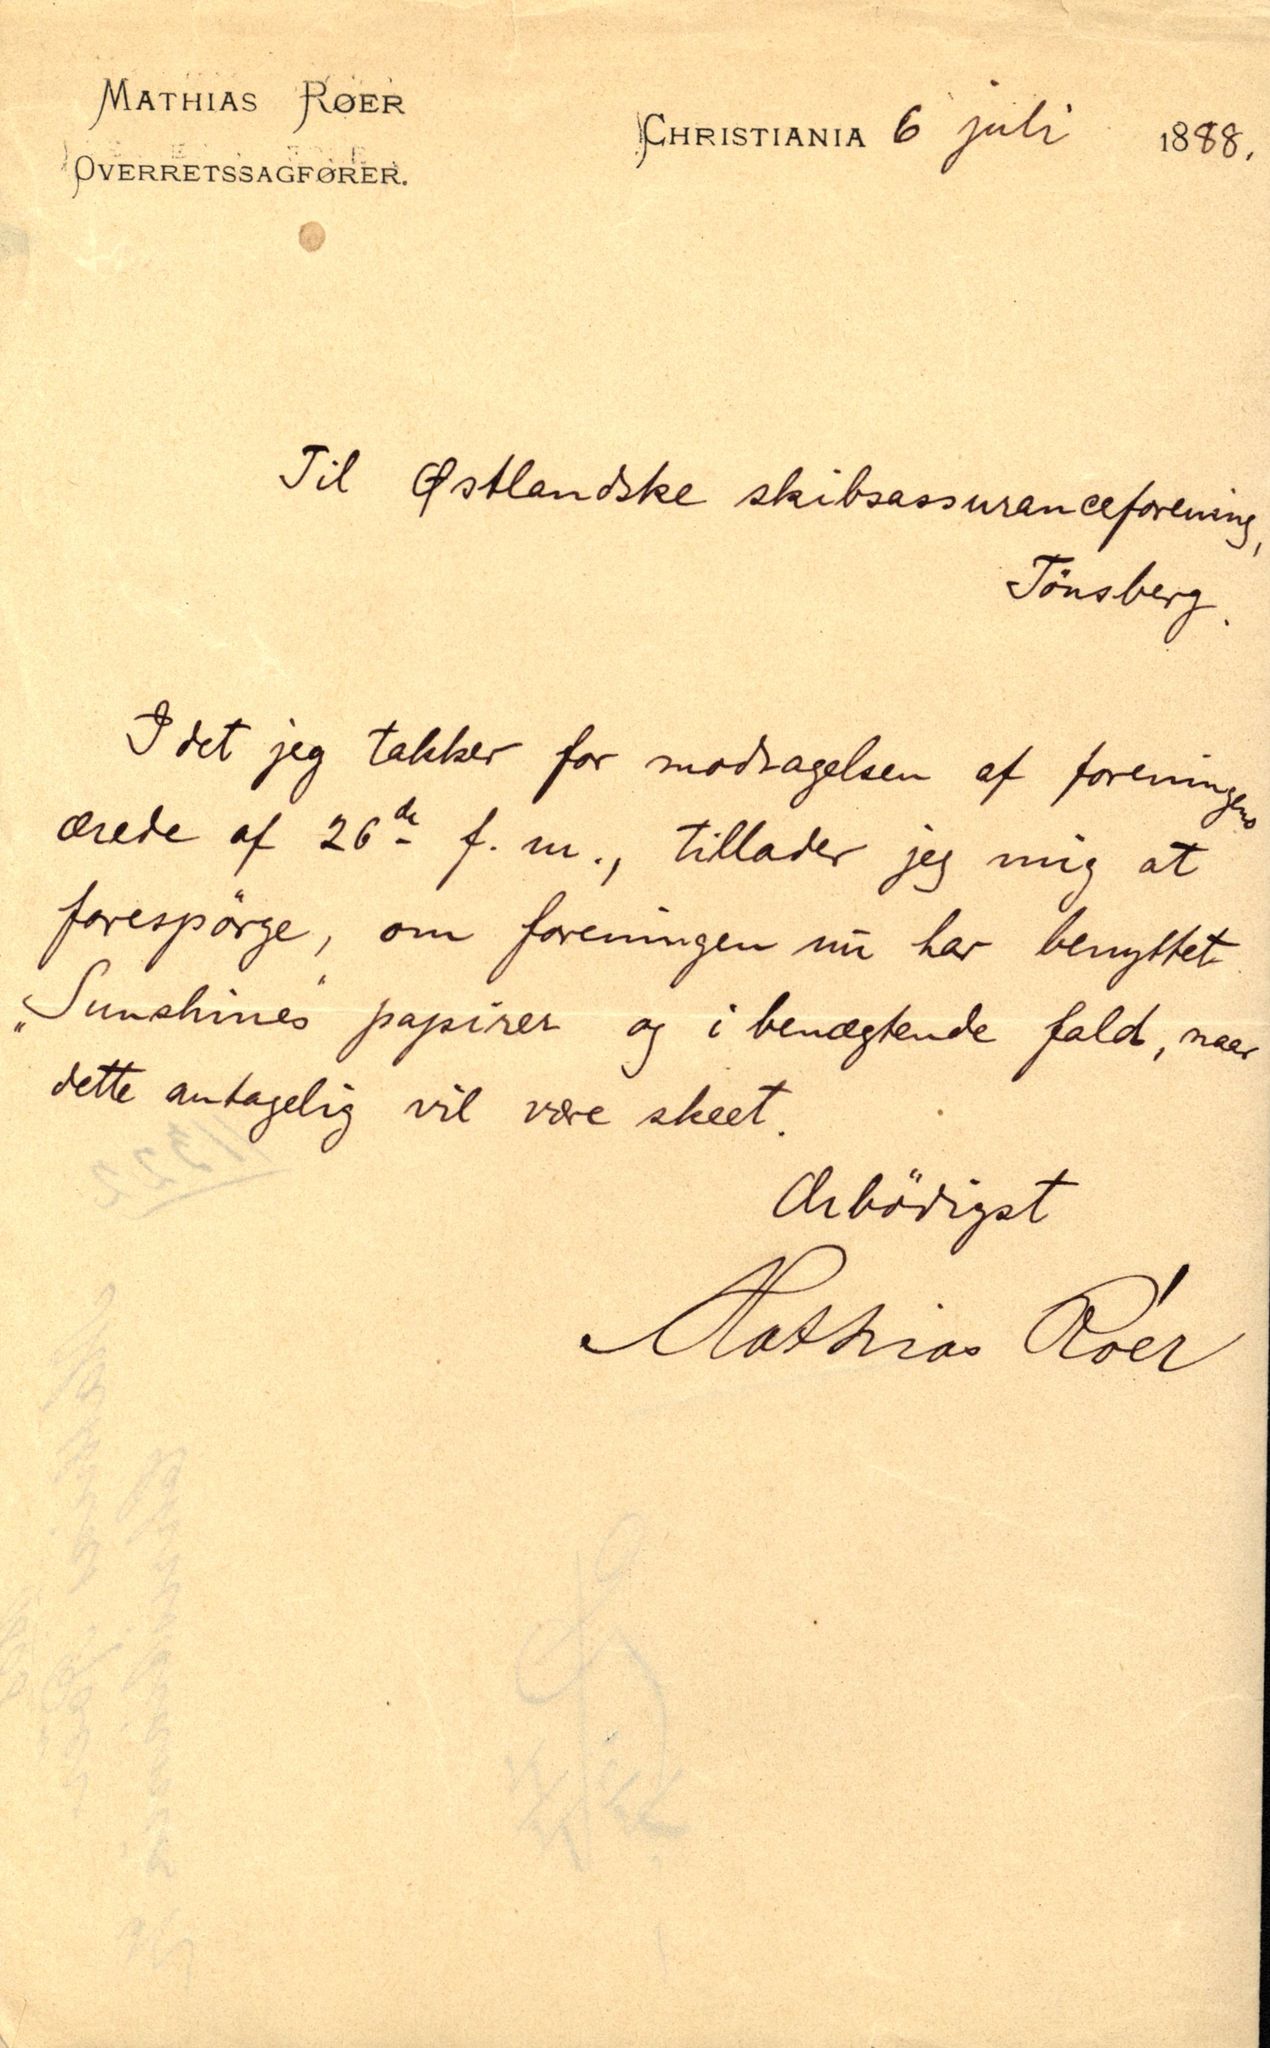 MATHIAS RØER
OVERRETSSAGFØRER.
CHRISTIANIA 6 juli 1888.
Til Østlandske skibsassuranceforening,
Tönsberg.
Idet jeg takker for modtagelsen af foreningens
ærede af 26de f. m., tillader jeg mig at
forespörge, om foreningen nu har benyttet
„Sunshines" papirer og i benægtende fald, naar
dette antagelig vil være skeet.
Ærbödigst
Mathias Röer
11322